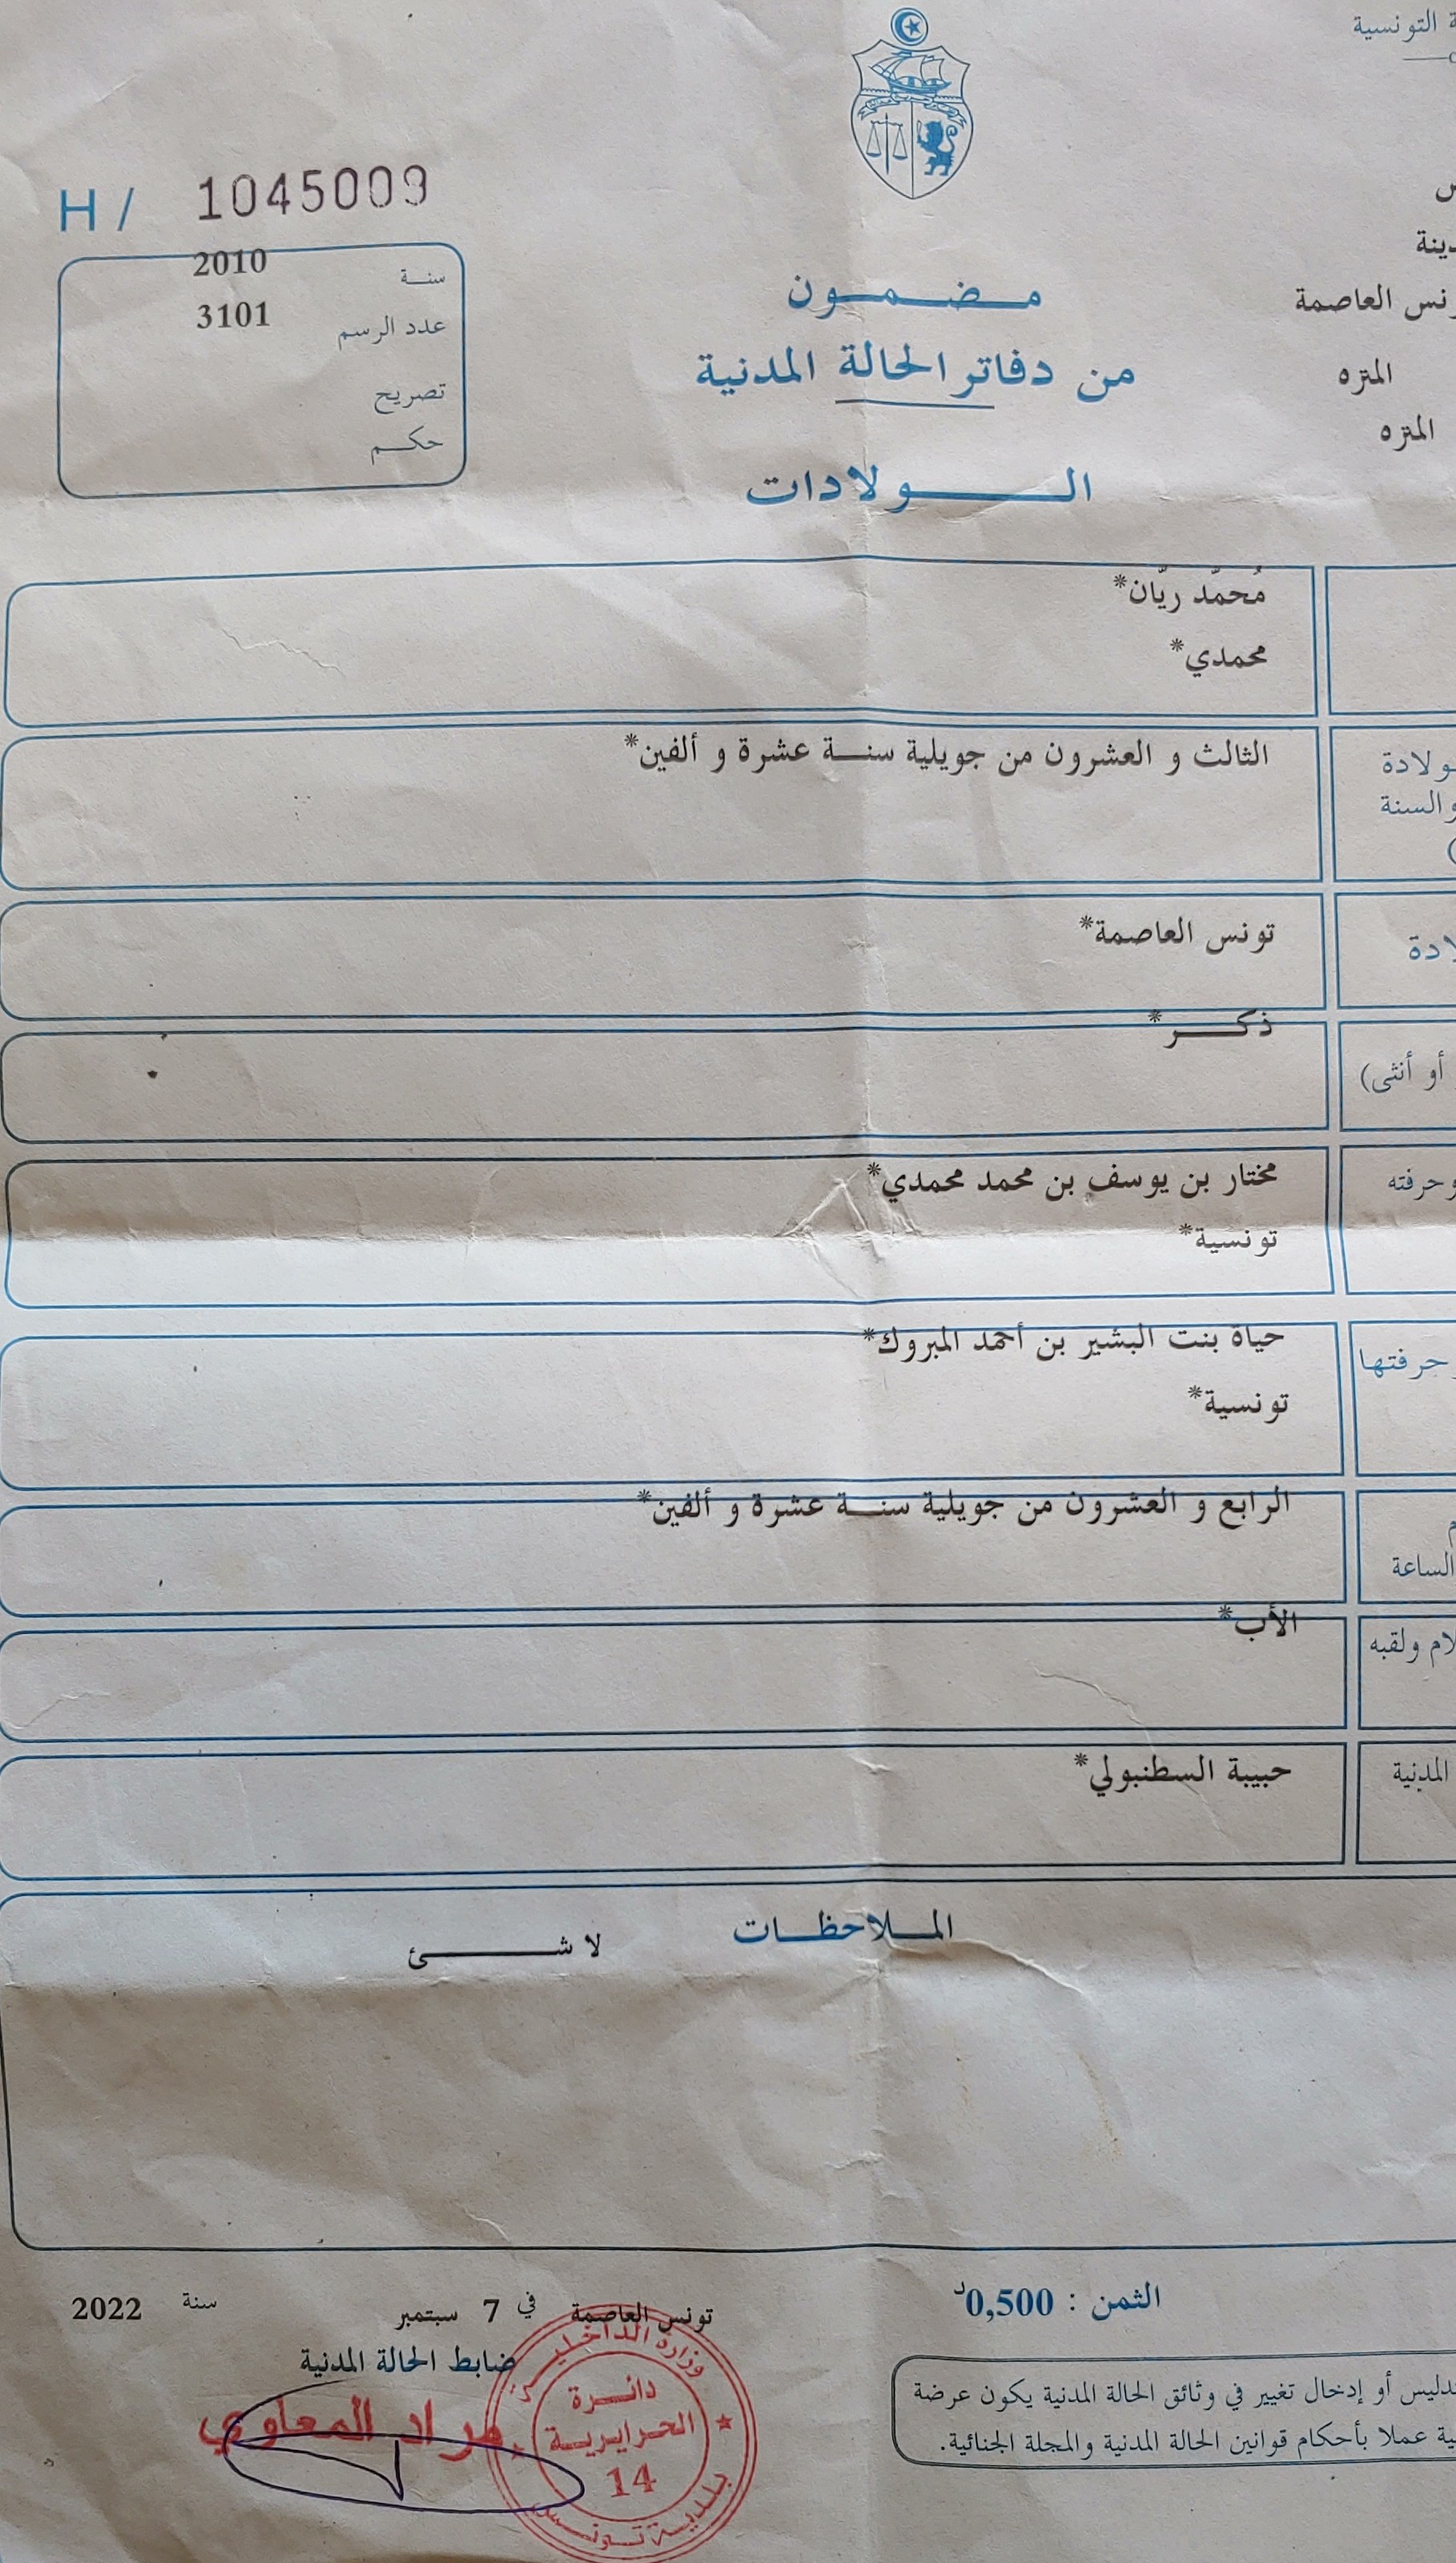 التونسية
H / 1045009
سنة 2010
عدد الرسم 3101
تصريح
حكم
مضمون
من دفاتر الحالة المدنية
الولادات
العاصمة
المتزه
المتزه
مُحمّد ريّان*
محمدي*
الثالث و العشرون من جويلية سنة عشرة و ألفين*
والسنة
تونس العاصمة*
ذكر*
أو أنثى)
مختار بن يوسف بن محمد محمدي*
وحرفته
تونسية*
حياة بنت البشير بن أحمد المبروك*
حرفتها
تونسية*
الرابع و العشرون من جويلية سنة عشرة و ألفين*
الساعة
الأب*
ولقبه
حبيبة السطنبولي*
المدنية
الملاحظات
لا شئ
الثمن : 0,500د
تونس العاصمة في 7 سبتمبر سنة 2022
ضابط الحالة المدنية
مراد المعاوي
وزارة الداخلية
دائرة
الحرايرية
14
بلدية تونس
أو إدخال تغيير في وثائق الحالة المدنية يكون عرضة
عملا بأحكام قوانين الحالة المدنية والمجلة الجنائية.